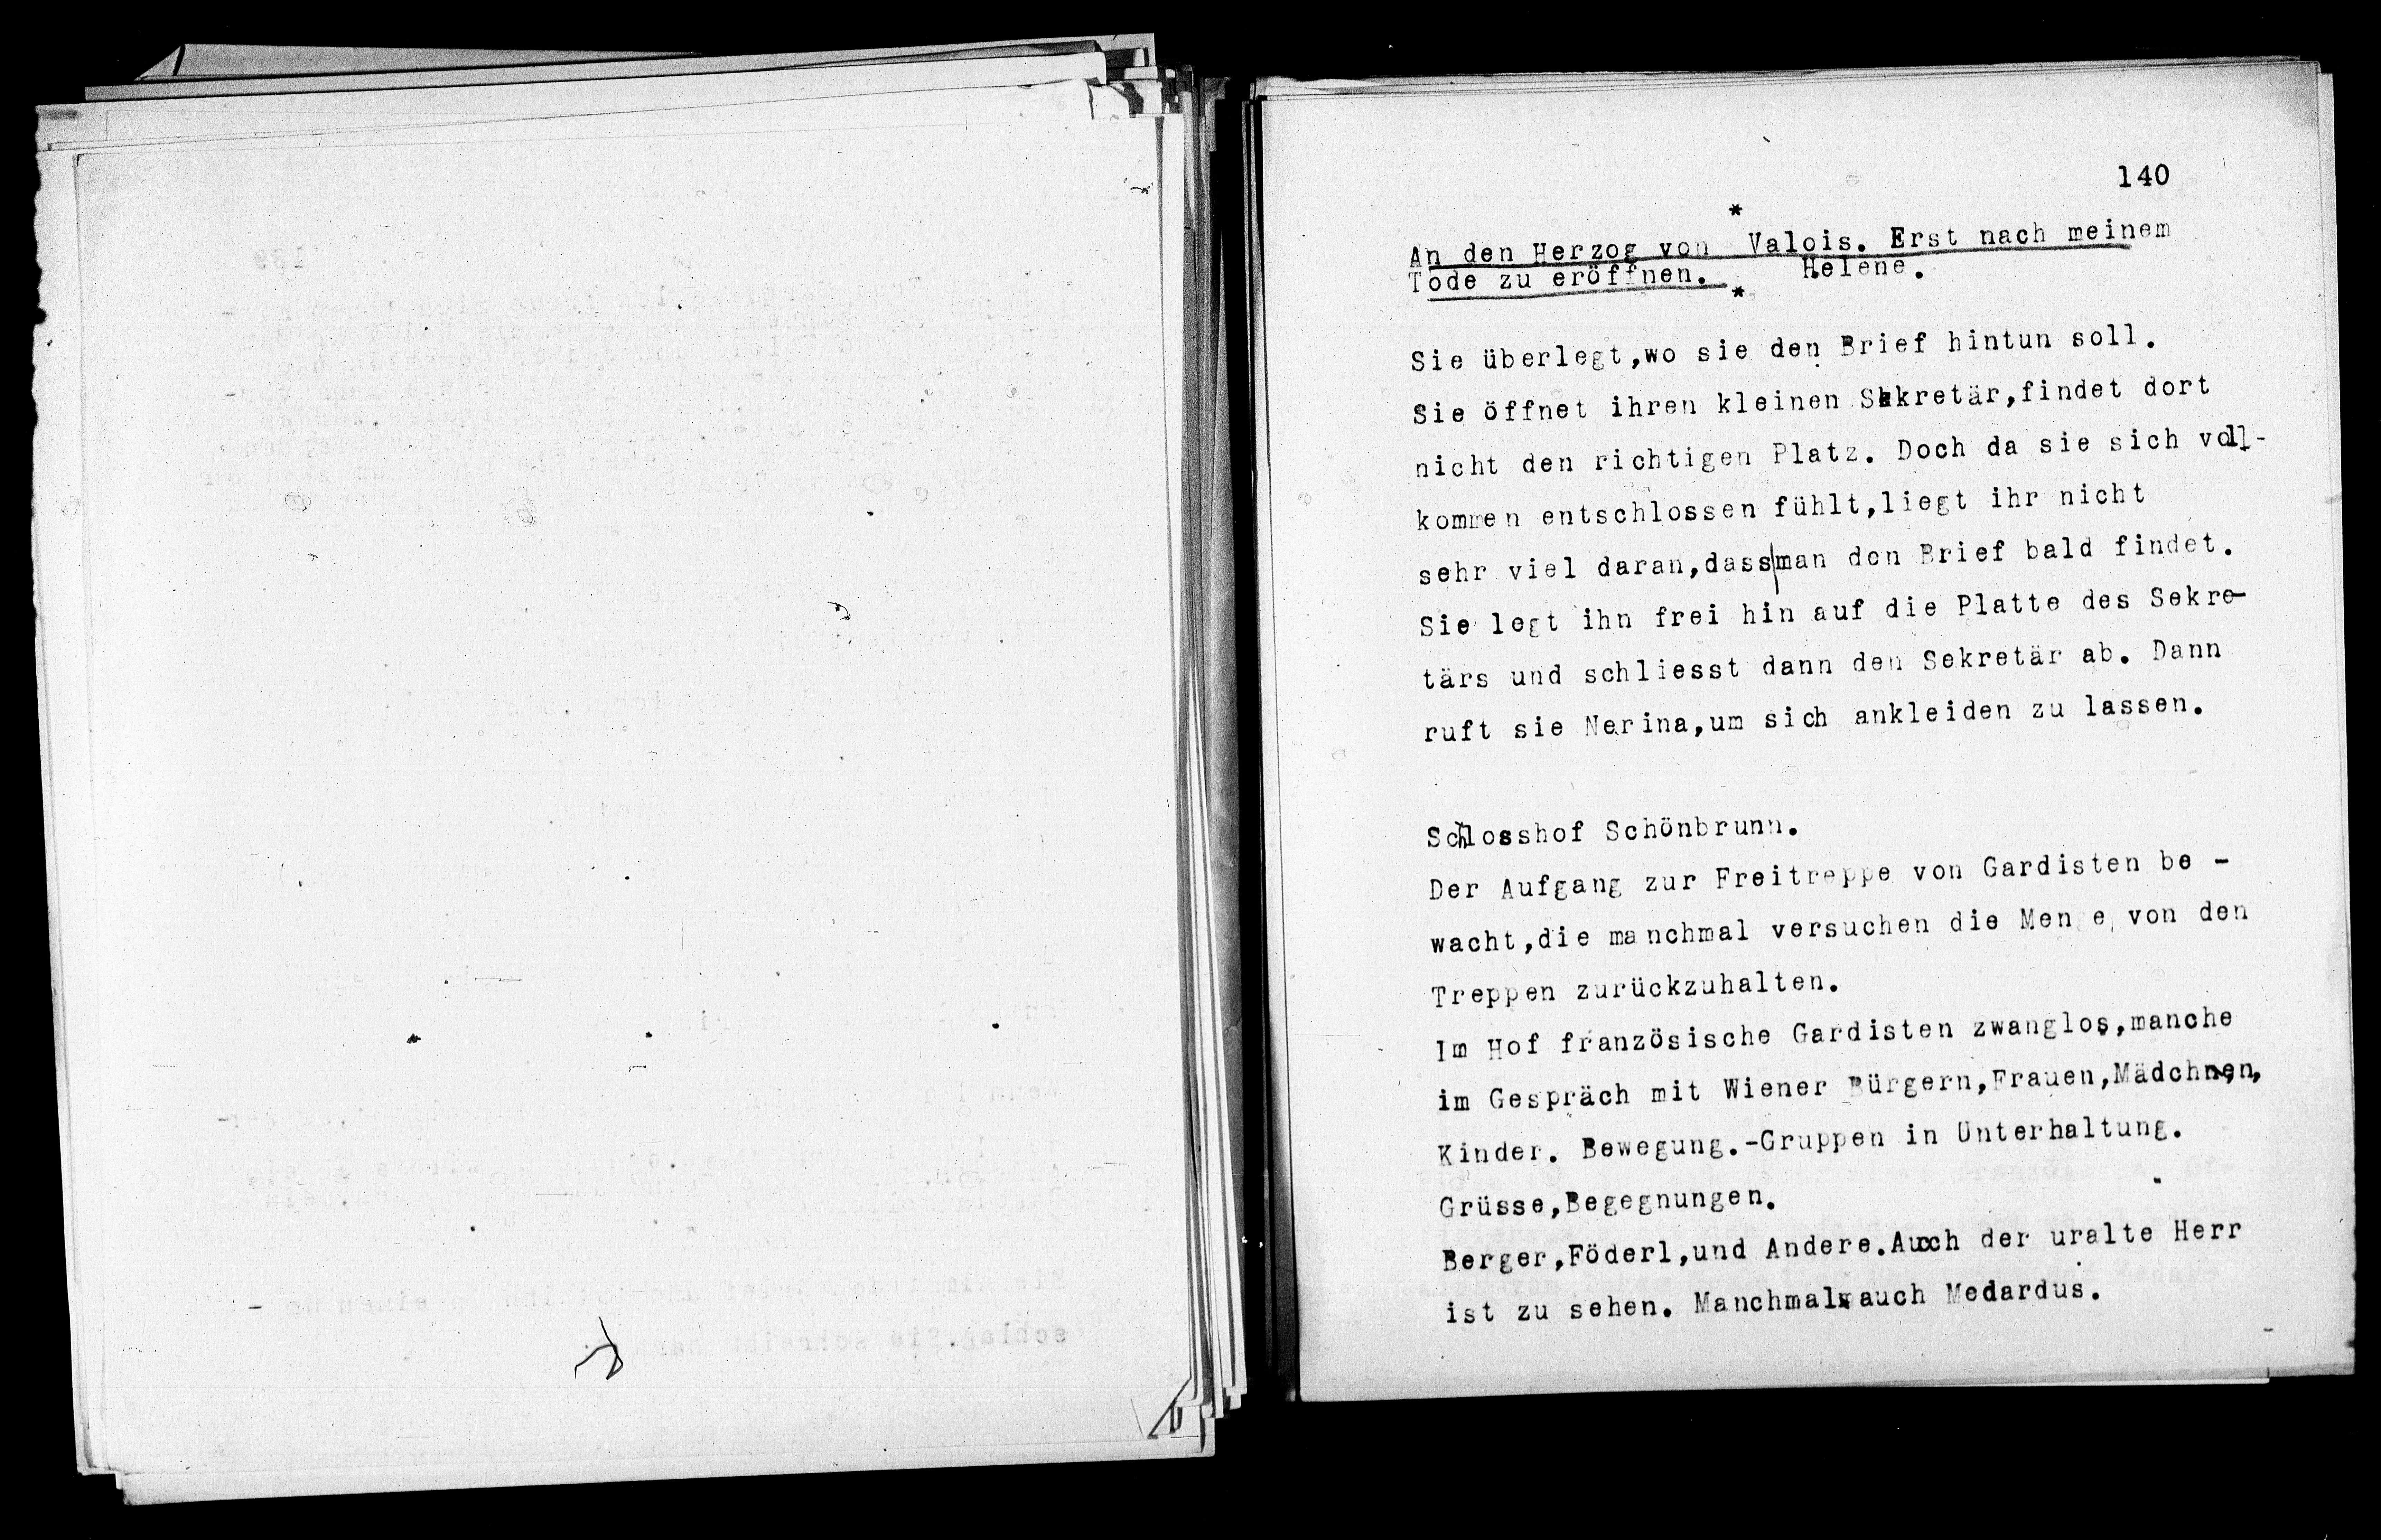 140
*
An den Herzog von Valois. Erst nach meinem
Tode zu eröffnen. Helene.
*
Sie überlegt,wo sie den Brief hintun soll.
Sie öffnet ihren kleinen Sekretär,findet dort
nicht den richtigen Platz. Doch da sie sich voll-
kommen entschlossen fühlt,liegt ihr nicht
sehr viel daran,dass man den Brief bald findet.
Sie legt ihn frei hin auf die Platte des Sekre-
tärs und schliesst dann den Sekretär ab. Dann
ruft sie Nerina,um sich ankleiden zu lassen.
Schlosshof Schönbrunn.
Der Aufgang zur Freitreppe von Gardisten be -
wacht,die manchmal versuchen die Menge von den
Treppen zurückzuhalten.
Im Hof französische Gardisten zwanglos,manche
im Gespräch mit Wiener Bürgern,Frauen,Mädchen,
Kinder. Bewegung.-Gruppen in Unterhaltung.
Grüsse,Begegnungen.
Berger,Föderl,und Andere.Auch der uralte Herr
ist zu sehen. Manchmal auch Medardus.